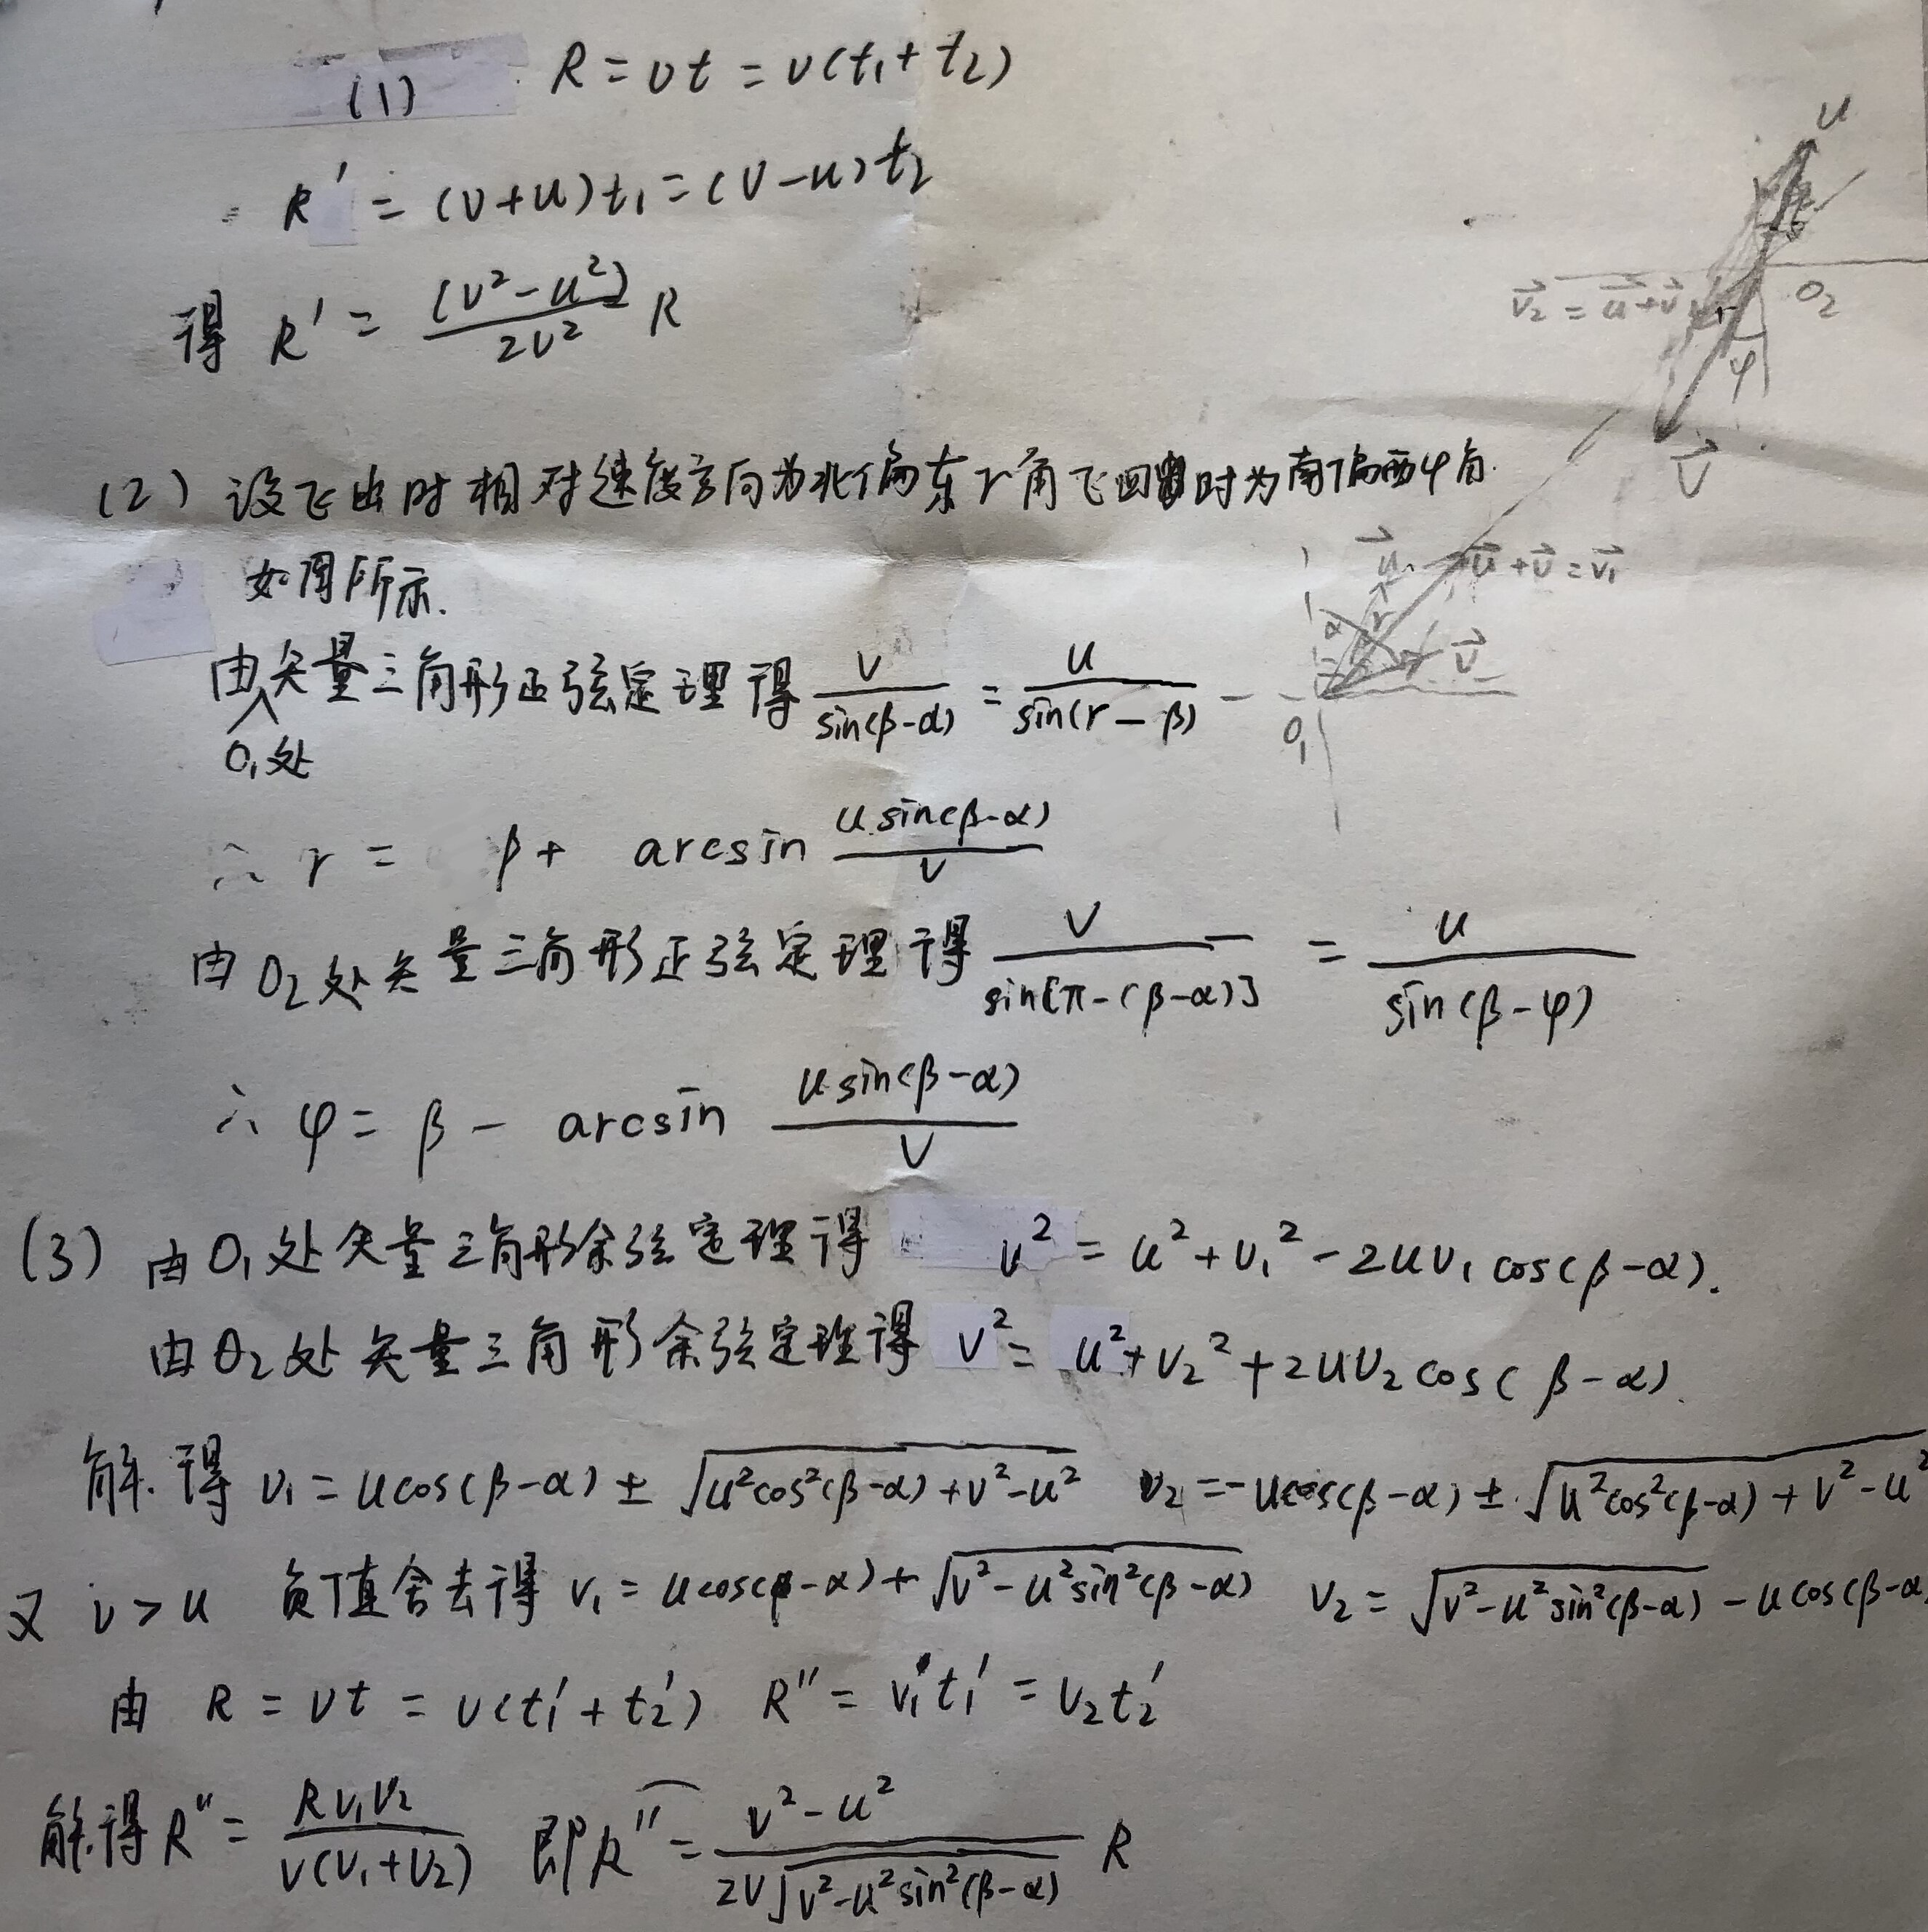 (1) R = vt = v(t₁ + t₂)
R' = (v+u)t₁ = (v-u)t₂
得 R' = (v²-u²)/2v² R
u
O₂
v⃗₂ = u⃗+v⃗
φ
v⃗
(2) 设飞出时相对速度方向为北偏东r角飞回时为南偏西φ角.
如图所示.
u⃗
u⃗+v⃗=v⃗₁
α
r
v⃗
O₁
由O₁处矢量三角形正弦定理得 v/sin(β-α) = u/sin(r-β)
∴ r = β + arcsin u sin(β-α)/v
由O₂处矢量三角形正弦定理得 v/sin[π-(β-α)] = u/sin(β-φ)
∴ φ = β - arcsin u sin(β-α)/v
(3) 由O₁处矢量三角形余弦定理得 v² = u²+v₁²-2uv₁cos(β-α).
由O₂处矢量三角形余弦定理得 v² = u²+v₂²+2uv₂cos(β-α).
解得 v₁=ucos(β-α)±√(u²cos²(β-α)+v²-u²) v₂=-ucos(β-α)±√(u²cos²(β-α)+v²-u²)
又 v>u 负值舍去得 v₁=ucos(β-α)+√(v²-u²sin²(β-α)) v₂=√(v²-u²sin²(β-α))-ucos(β-α)
由 R = vt = v(t₁'+t₂') R''=v₁t₁'=v₂t₂'
解得R''= Rv₁v₂/v(v₁+v₂) 即R''= (v²-u²)/2v√(v²-u²sin²(β-α)) R